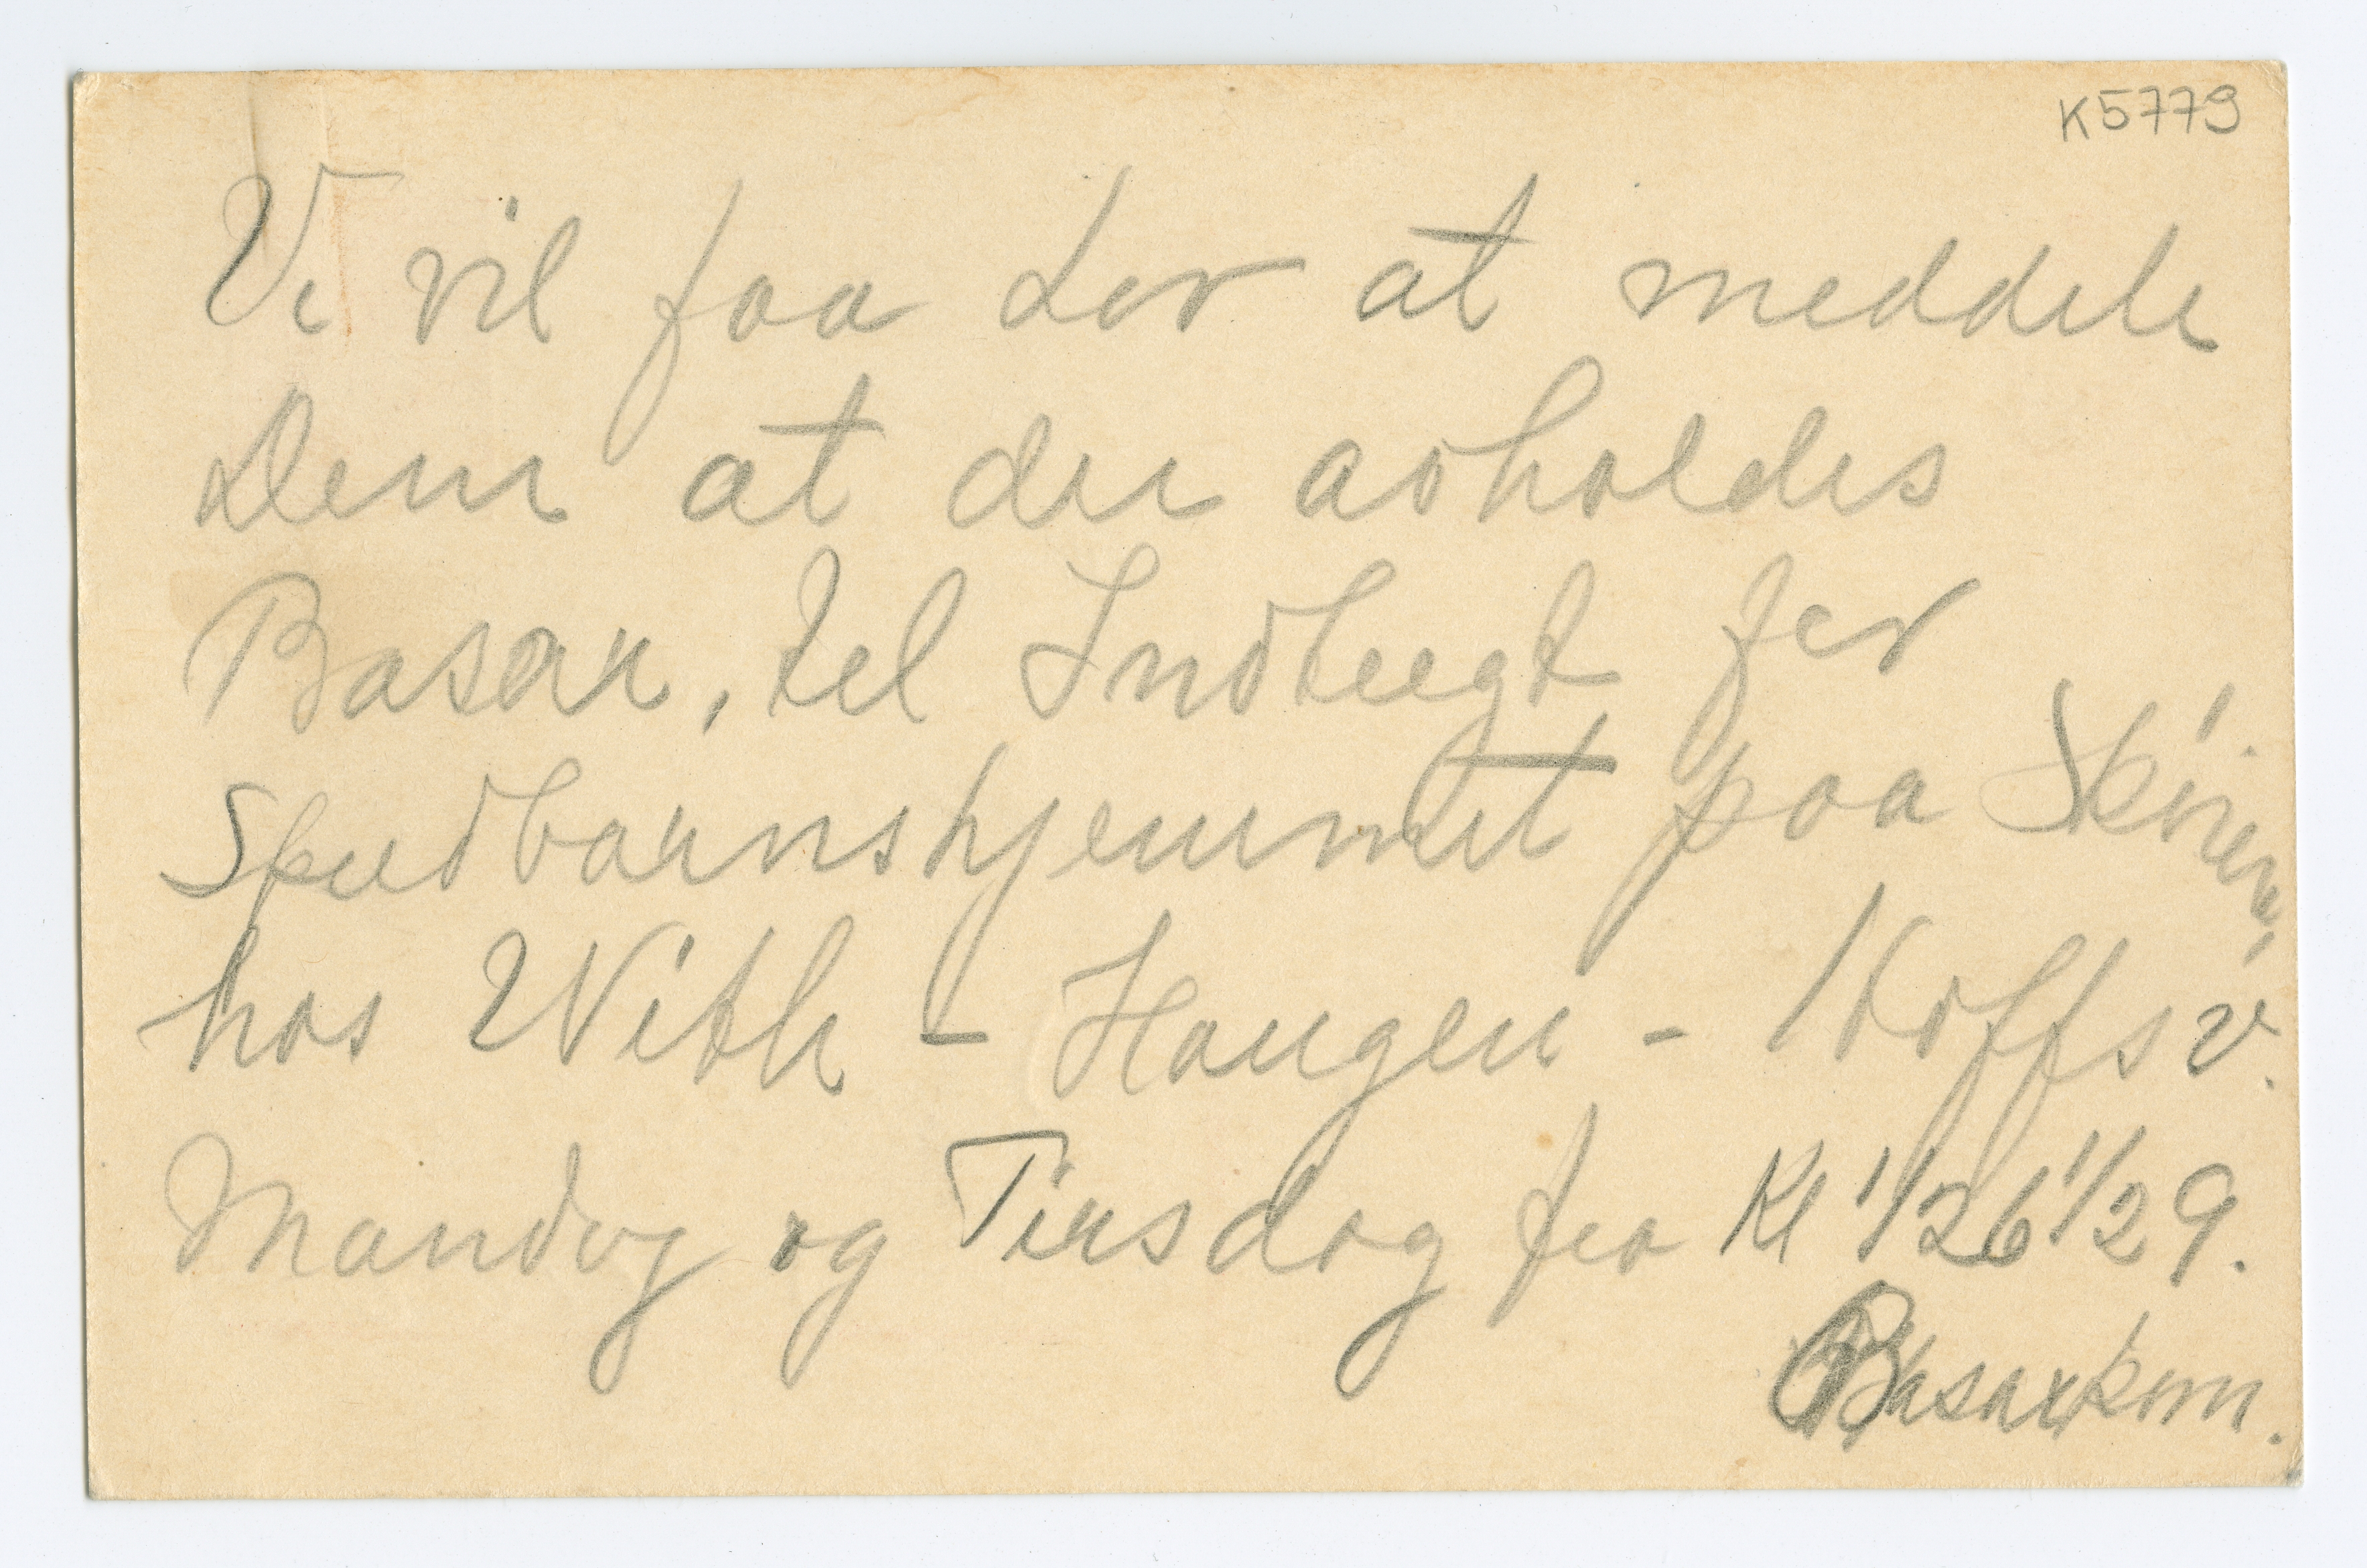 K5779
Vi vil faa Lov at meddele
Dem at der avholdes
Basar, til Indtægt for
Spedbarnshjemmet paa Skøien,
hos With - Haugen - Hoffsv.
Mandag og Tirsdag fra Kl 1/26 1/29.
Basarkom.